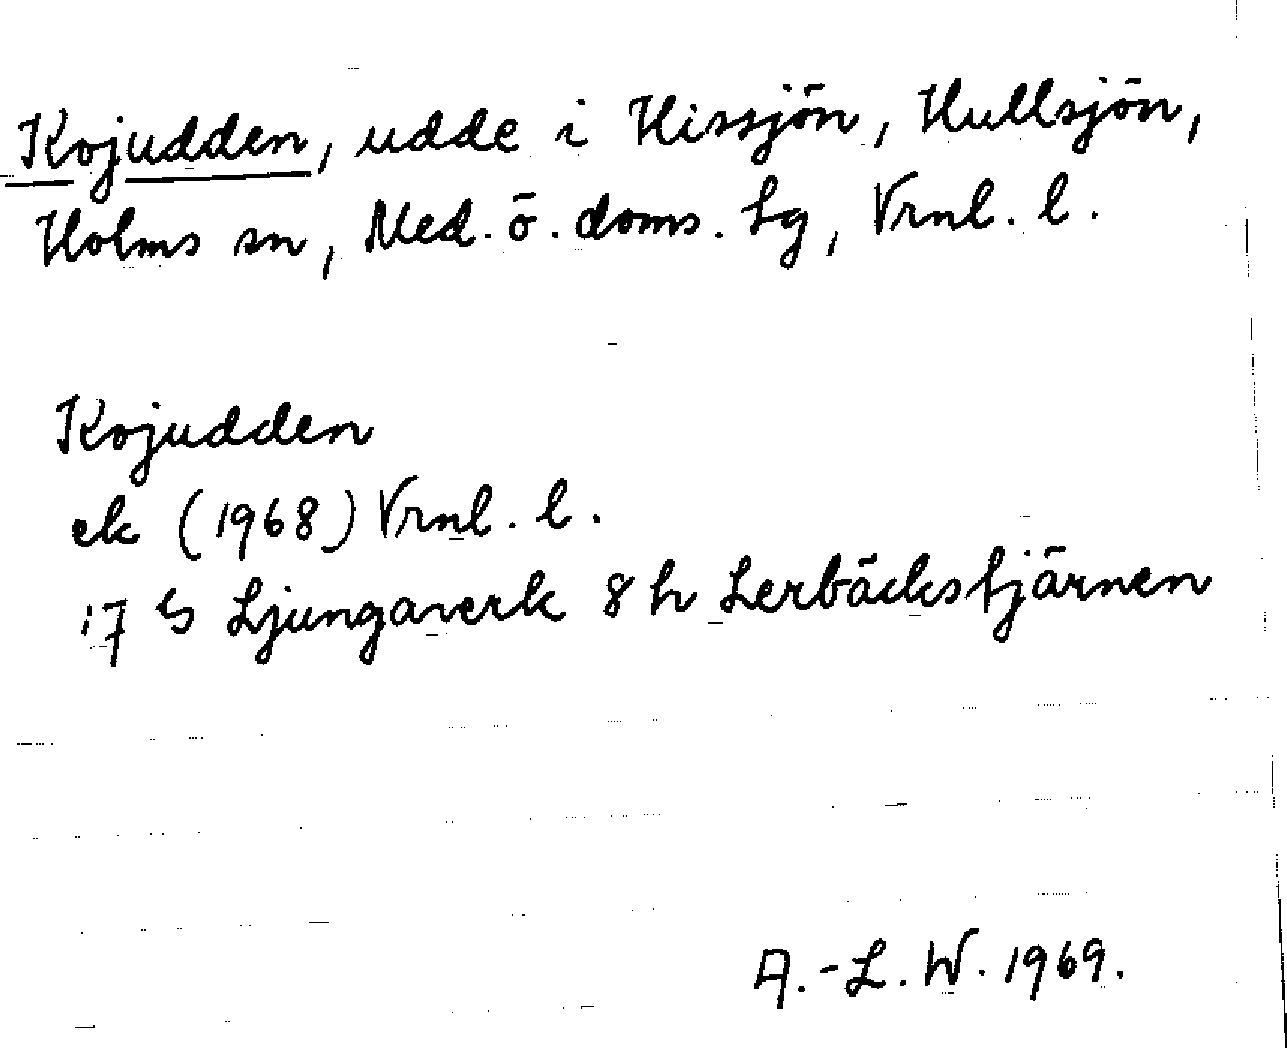 Kojudden, udde i Hissjön, Hullsjön,
Holms sn, Med. ö. doms. lg, Vrnl. l.
Kojudden
ek (1968) Vrnl. l.
17 G Ljungaverk 8 h Lerbäckstjärnen
A.-L. W. 1969.